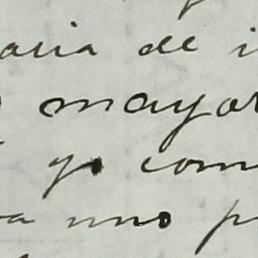 aria de i
mayor
yo com
a uno p